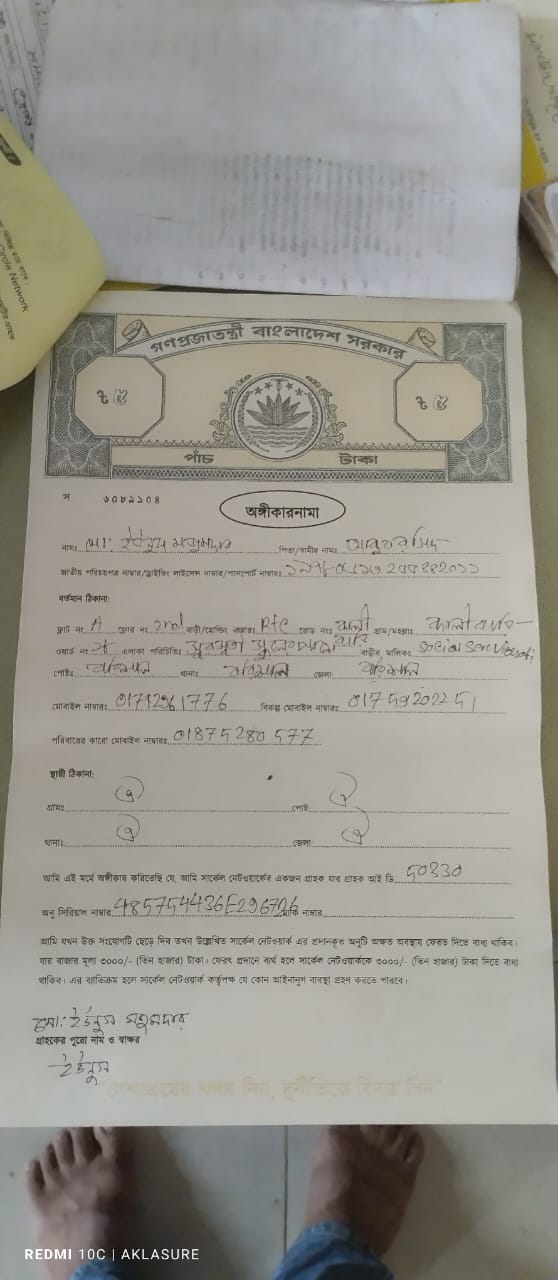 Circle Network
গণপ্রজাতন্ত্রী বাংলাদেশ সরকার
৳ ৫
৳ ৫
পাঁচ টাকা
স ৬০৮৯১০৪
অঙ্গীকারনামা
নামঃ মো: ইউনুস মজুমদার পিতা/স্বামীর নামঃ
জাতীয় পরিচয়পত্র নাম্বার/ড্রাইভিং লাইসেন্স নাম্বার/পাসপোর্ট নাম্বারঃ
বর্তমান ঠিকানা:
ফ্লাট নং A ফ্লোর নং 2nd বাড়ী/হোল্ডিং নাম্বারঃ রোড নংঃ কালী গ্রাম/মহল্লাঃ কালী বাড়ি
ওয়ার্ড নং এলাকা পরিচিতিঃ বাড়ীর মালিকঃ Social
পোষ্টঃ বরিশাল থানাঃ বরিশাল জেলাঃ বরিশাল
মোবাইল নাম্বারঃ 01712961776 বিকল্প মোবাইল নাম্বারঃ 01759202251
পরিবারের কারো মোবাইল নাম্বারঃ 01875280577
স্থায়ী ঠিকানা:
গ্রামঃ ঐ পোষ্ট: ঐ
থানাঃ ঐ জেলাঃ ঐ
আমি এই মর্মে অঙ্গীকার করিতেছি যে, আমি সার্কেল নেটওয়ার্কের একজন গ্রাহক যার গ্রাহক আই ডি 50330
অনু সিরিয়াল নাম্বার 485754436E296706 নাম্বার
আমি যখন উক্ত সংযোগটি ছেড়ে দিব তখন উল্লেখিত সার্কেল নেটওয়ার্ক এর প্রদানকৃত অনুটি অক্ষত অবস্থায় ফেরত দিতে বাধ্য থাকিব।
যার বাজার মূল্য ৩০০০/- (তিন হাজার) টাকা। ফেরৎ প্রদানে ব্যর্থ হলে সার্কেল নেটওয়ার্ককে ৩০০০/- (তিন হাজার) টাকা দিতে বাধ্য
থাকিব। এর ব্যতিক্রম হলে সার্কেল নেটওয়ার্ক কর্তৃপক্ষ যে কোন আইনানুগ ব্যবস্থা গ্রহণ করতে পারবে।
মো: ইউনুস মজুমদার
গ্রাহকের পুরো নাম ও স্বাক্ষর
ইউনুস
REDMI 10C | AKLASURE